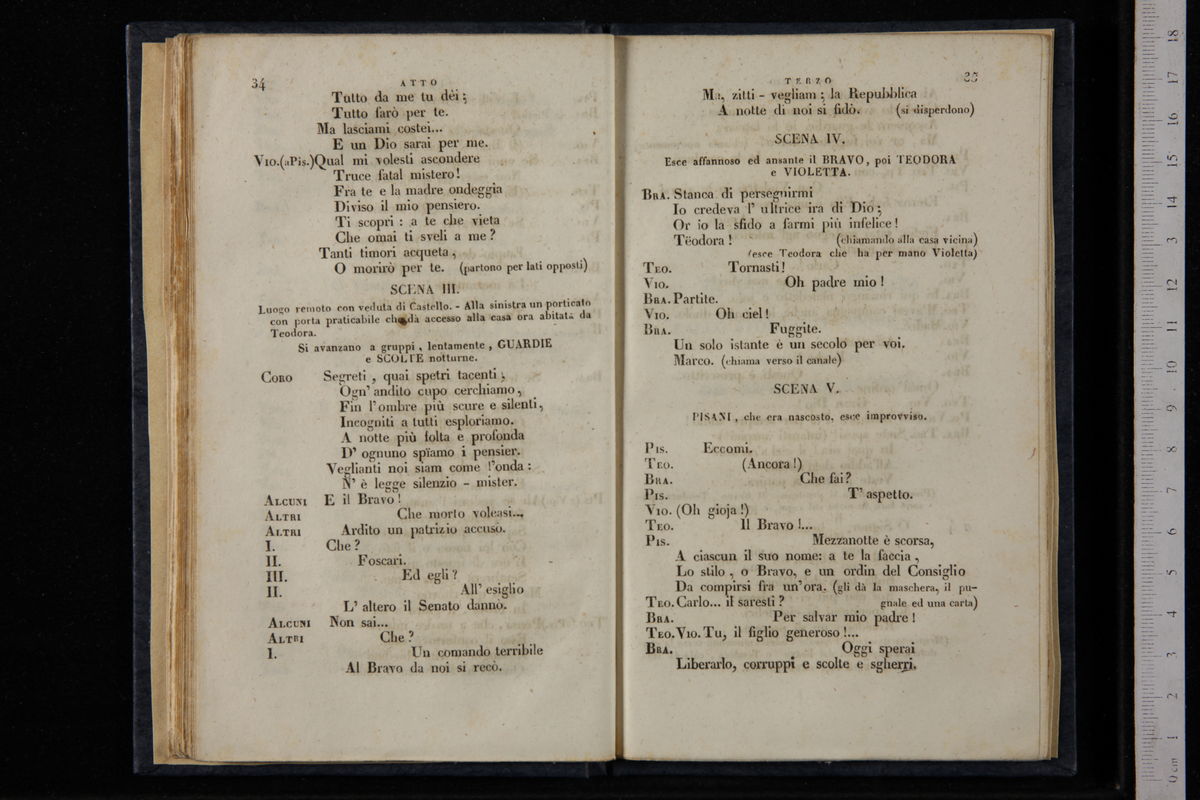 34
ATTO
Tutto da me tu dèi;
Tutto farò per te.
Ma lasciami costei...
E un Dio sarai per me.
Vio.(aPis.)Qual mi volesti ascondere
Truce fatal mistero!
Fra te e la madre ondeggia
Diviso il mio pensiero.
Ti scopri : a te che vieta
Che omai ti sveli a me ?
Tanti timori acqueta,
O morirò per te. (partono per lati opposti)
SCENA III.
Luogo remoto con veduta di Castello. - Alla sinistra un porticato
con porta praticabile che dà accesso alla casa ora abitata da
Teodora.
Si avanzano a gruppi , lentamente , GUARDIE
e SCOLTE notturne.
Coro Segreti , quai spetri tacenti ;
Ogn' andito cupo cerchiamo,
Fin l'ombre più scure e silenti,
Incogniti a tutti esploriamo.
A notte più folta e profonda
D' ognuno spïamo i pensier.
Veglianti noi siam come l'onda :
N' è legge silenzio - mister.
Alcuni E il Bravo !
Altri Che morto voleasi...
Altri Ardito un patrizio accusò.
I. Che ?
II. Foscari.
III. Ed egli ?
II. All' esiglio
L' altero il Senato dannò.
Alcuni Non sai...
Altri Che ?
I. Un comando terribile
Al Bravo da noi si recò.
TERZO
35
Ma, zitti - vegliam ; la Repubblica
A notte di noi si fidò. (si disperdono)
SCENA IV.
Esce affannoso ed ansante il BRAVO, poi TEODORA
e VIOLETTA.
Bra. Stanca di perseguirmi
Io credeva l' ultrice ira di Dio;
Or io la sfido a farmi più infelice !
Tëodora ! (chiamando alla casa vicina)
(esce Teodora che ha per mano Violetta)
Teo. Tornasti!
Vio. Oh padre mio !
Bra. Partite.
Vio. Oh ciel !
Bra. Fuggite.
Un solo istante è un secolo per voi.
Marco. (chiama verso il canale)
SCENA V.
PISANI , che era nascosto, esce improvviso.
Pis. Eccomi.
Teo. (Ancora !)
Bra. Che fai ?
Pis. T' aspetto.
Vio. (Oh gioja !)
Teo. Il Bravo !...
Pis. Mezzanotte è scorsa,
A ciascun il suo nome: a te la faccia ,
Lo stilo , o Bravo, e un ordin del Consiglio
Da compirsi fra un'ora. (gli dà la maschera, il pu-
Teo. Carlo... il saresti ? gnale ed una carta)
Bra. Per salvar mio padre !
Teo. Vio. Tu, il figlio generoso !...
Bra. Oggi sperai
Liberarlo, corruppi e scolte e sgherri.